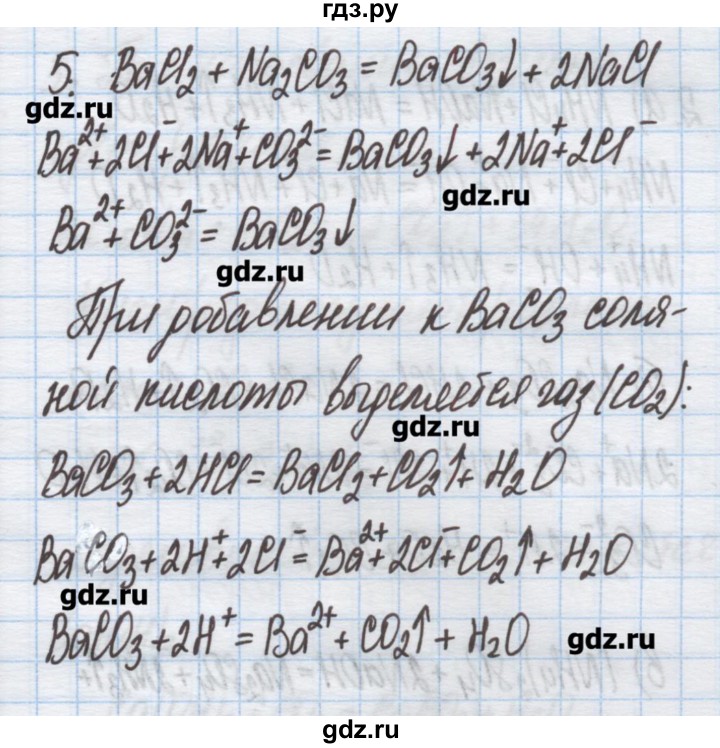 гдз.ру
5. BaCl₂ + Na₂CO₃ = BaCO₃↓ + 2NaCl
gdz.ru
Ba²⁺ + 2Cl⁻ + 2Na⁺ + CO₃²⁻ = BaCO₃↓ + 2Na⁺ + 2Cl⁻
gdz.ru
Ba²⁺ + CO₃²⁻ = BaCO₃↓
gdz.ru
При добавлении к BaCO₃ соля-
ной кислоты выделяется газ (CO₂):
gdz.ru
BaCO₃ + 2HCl = BaCl₂ + CO₂↑ + H₂O
BaCO₃ + 2H⁺ + 2Cl⁻ = Ba²⁺ + 2Cl⁻ + CO₂↑ + H₂O
gdz.ru
BaCO₃ + 2H⁺ = Ba²⁺ + CO₂↑ + H₂O
gdz.ru
gdz.ru